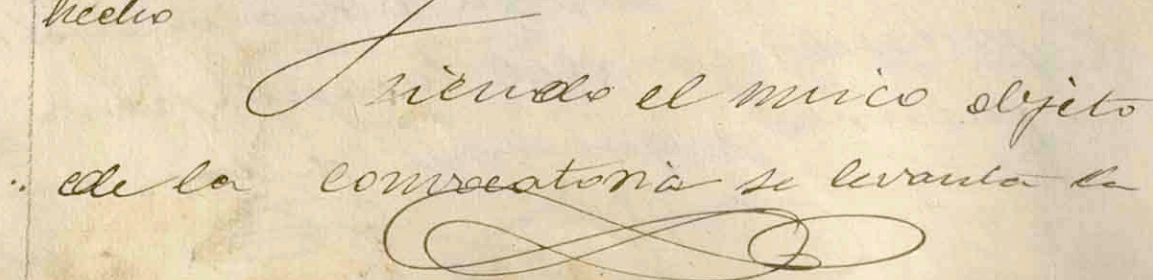 hecho
Y siendo el unico objeto
de la convocatoria se levanta la